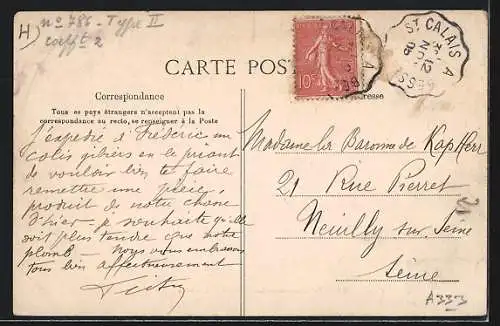 H) nº 786 - Type II
coefft 2
CARTE POST
10c
ST CALAIS A
BESS
12
NOV
06
Correspondance
Tous ces pays étrangers n'acceptent pas la
correspondance au recto, se renseigner à la Poste
resse
J'expédie à Frédéric un
colis gibiers en le priant
de vouloir bien te faire
remettre une pièce,
produit de notre chasse
d'hier - je souhaite qu'elle
soit plus tendre que notre
plomb - Nous vous embrassons
tous bien affectueusement
Madame la Baronne de Kap Herr
21 Rue Pierret
Neuilly sur Seine
Seine
A333